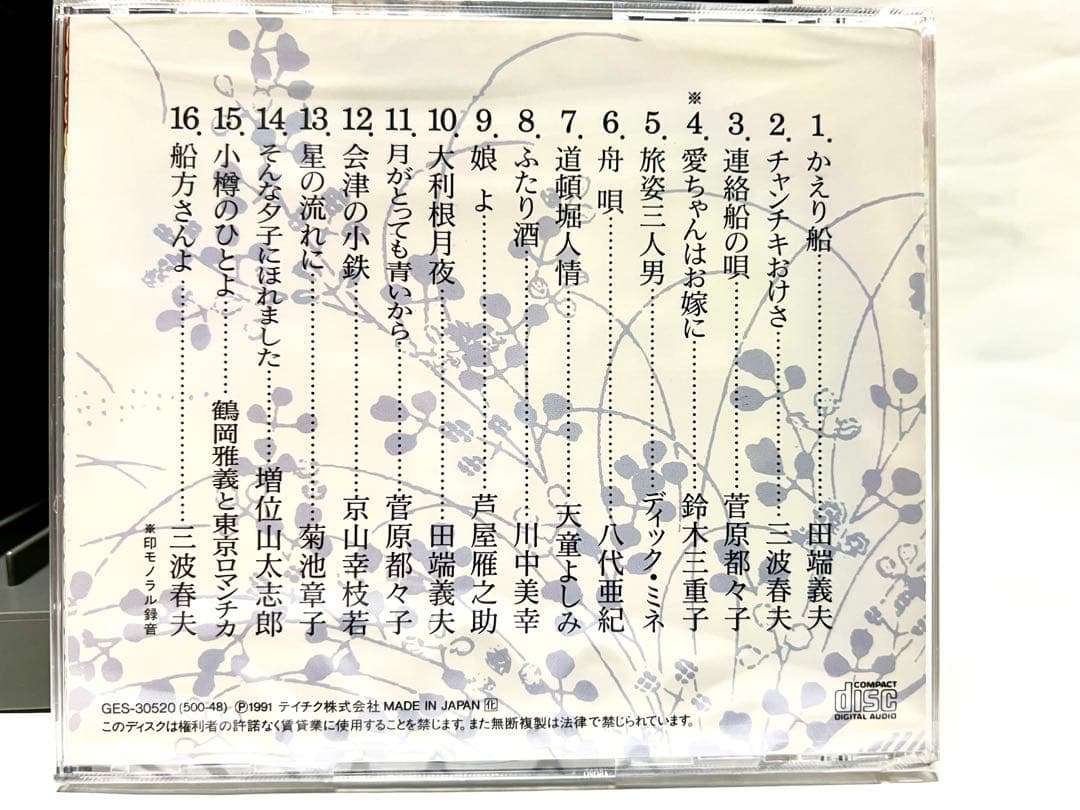 1.かえり船……田端義夫
2.チャンチキおけさ……三波春夫
3.連絡船の唄……菅原都々子
※4.愛ちゃんはお嫁に……鈴木三重子
5.旅姿三人男……ディック・ミネ
6.舟唄……八代亜紀
7.道頓堀人情……天童よしみ
8.ふたり酒……川中美幸
9.娘よ……芦屋雁之助
10.大利根月夜……田端義夫
11.月がとっても青いから……菅原都々子
12.会津の小鉄……京山幸枝若
13.星の流れに……菊池章子
14.そんな夕子にほれました……増位山太志郎
15.小樽のひとよ……鶴岡雅義と東京ロマンチカ
16.船方さんよ……三波春夫
※印モノラル録音
GES-30520 (500-48) Ⓟ1991 テイチク株式会社 MADE IN JAPAN 化
このディスクは権利者の許諾なく賃貸業に使用することを禁じます。また無断複製は法律で禁じられています。
COMPACT
disc
DIGITAL AUDIO